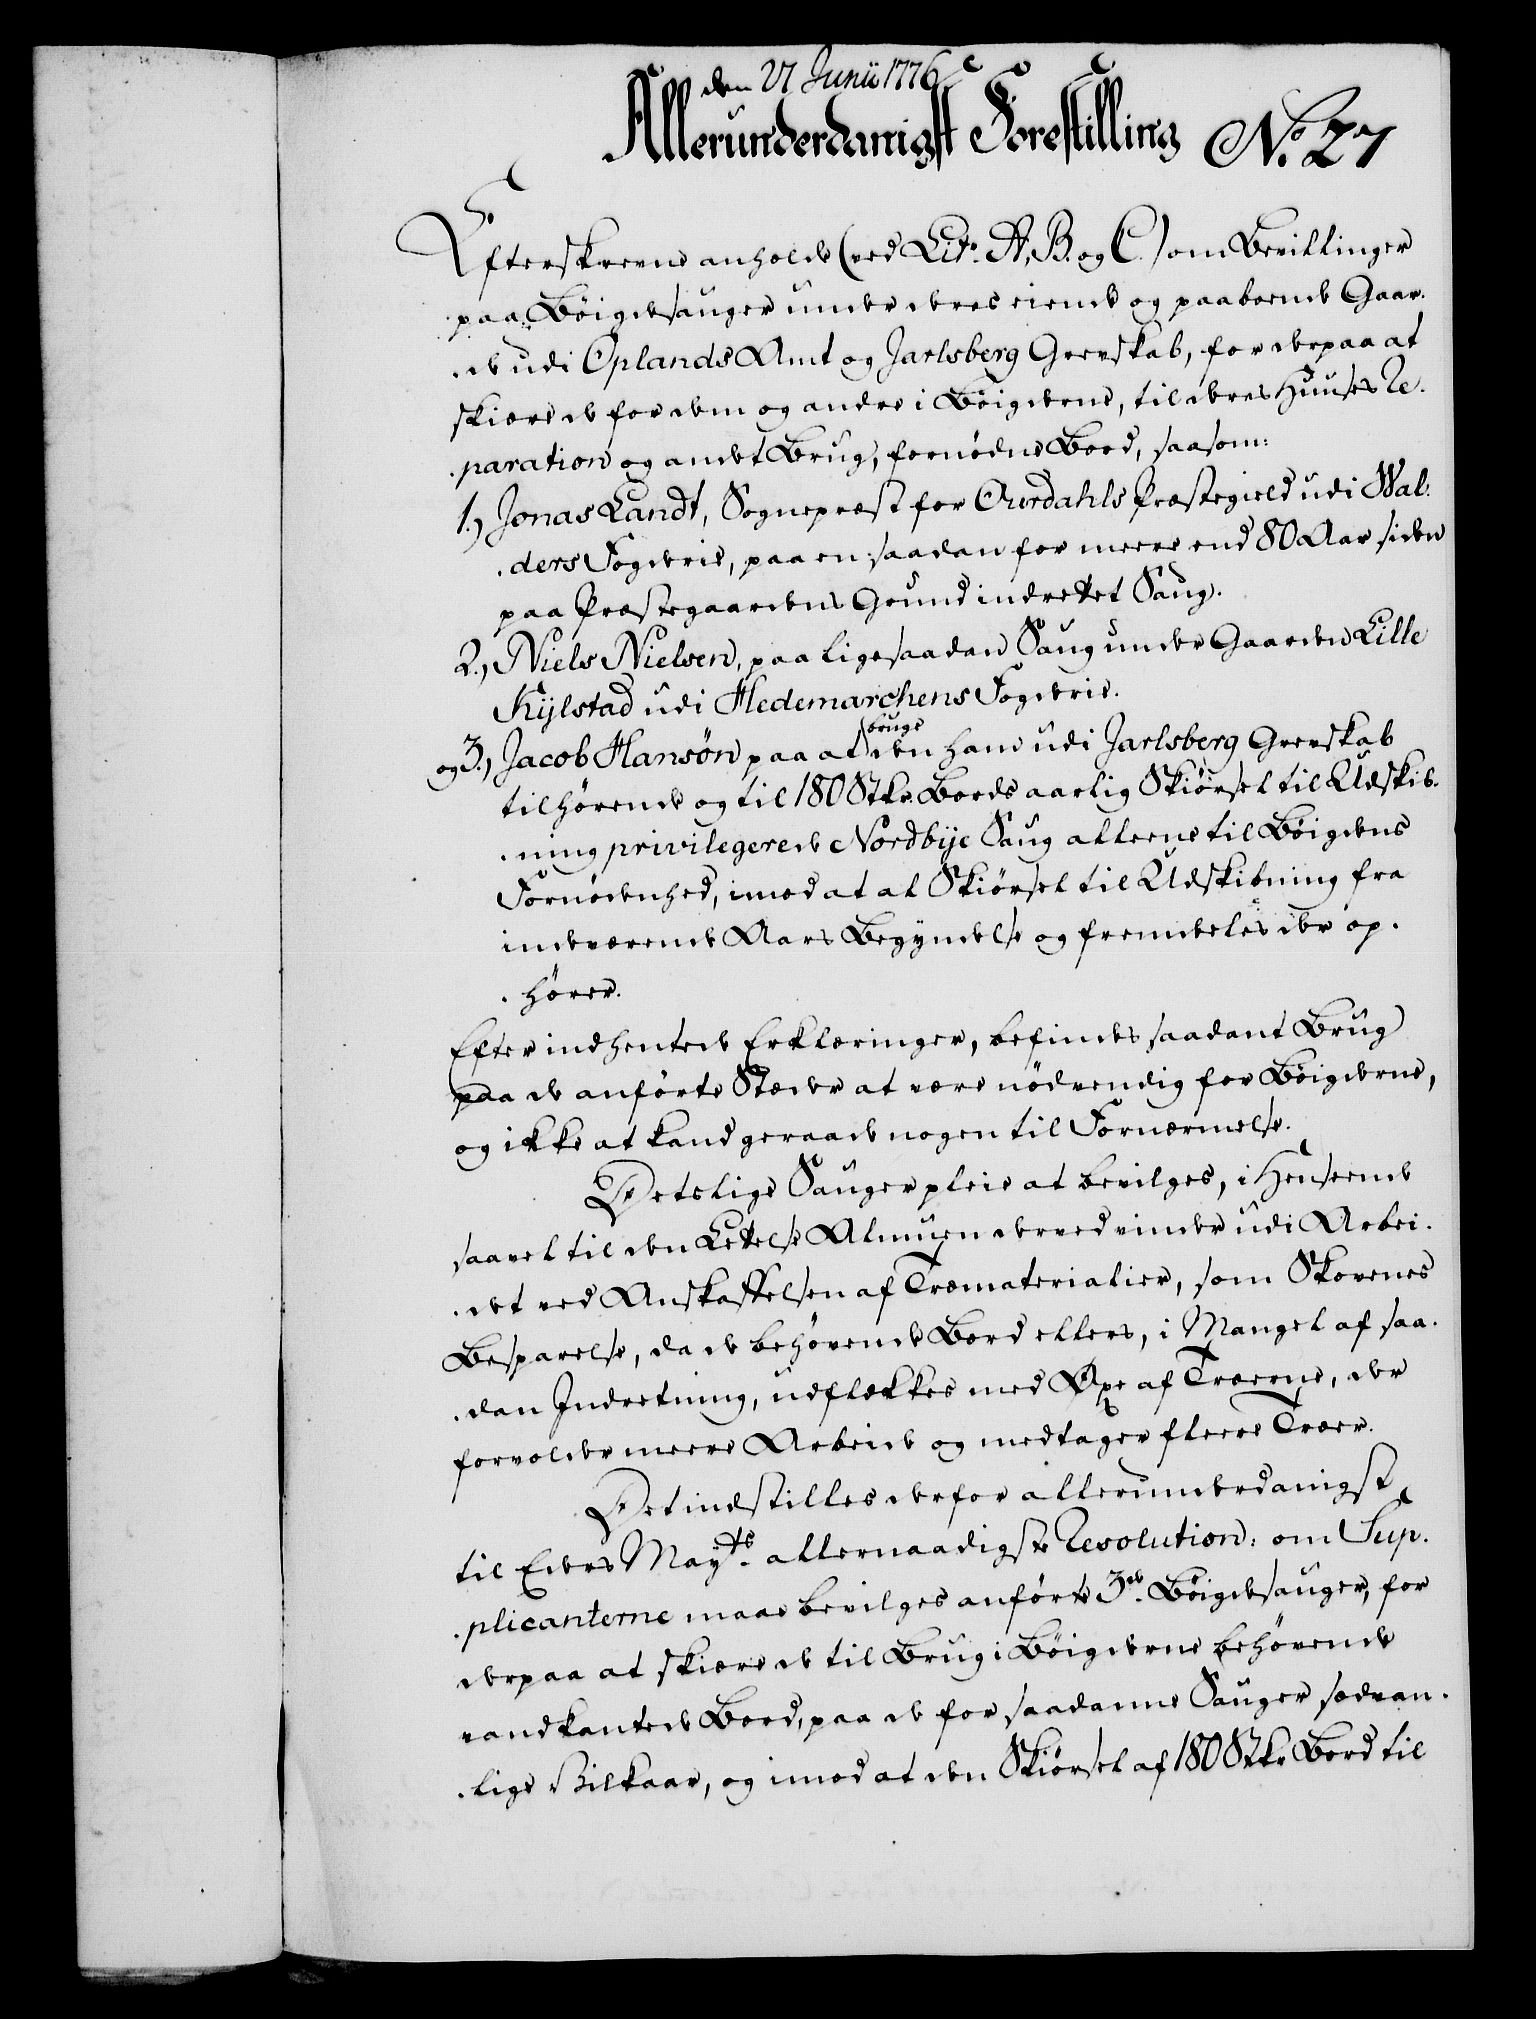 den 27 Junii 1776
Allerunderdanigst Forestilling No. 27
Efterskrevne anholde (ved Litr. A, B. og C.) om Bevillinger
paa Böigdesauger under deres eiende og paaboende Gaar-
-de udi Oplands Amt og Jarlsberg Grevskab, for derpaa at
skiære de for dem og andre i Böigderne, til deres Huuses Re-
-paration og andet Brug, fornödne Bord, saasom:
1.) Jonas Landt, Sognepræst for Ourdahls Præstegield udi Wal-
-ders Fogderie, paa en saadan for meere end 80 Aar siden
paa Præstegaardens Grund indrettet Saug.
2.) Niels Nielsen, paa ligesaadan Saug under Gaarden Lille
Kijlstad udi Hedemarchens Fogderie.
og 3.) Jacob Hansön paa at bruge den ham udi Jarlsberg Grevskab
tilhörende og til 180 Stkr. Bords aarlig Skiörsel til Udskib-
-ning privilegerede Nordbije Saug alleene til Böigdens
Fornödenhed, imod at al Skiörsel til Udskibning fra
indeværende Aars Begyndelse og fremdeles der op-
-hörer.
Efter indhentede Erklæringer, befindes saadant Brug
paa de anförte Stæder at være nödvendig for Böigderne,
og ikke at kand geraade nogen til Fornærmelse.
Detslige Sauger pleie at bevilges, i Henseende
saavel til den Lettelse Almuen derved vinder udi Arbei-
-det ved Anskaffelsen af Træmaterialier, som Skovenes
Besparelse, da de behövende Bord ellers, i Mangel af saa-
-dan Indretning, udflækkes med Öxe af Træerne, der
forvolder meere Arbeide og medtager fleere Træer.
Det indstilles derfor allerunderdanigst
til Eders Mayts. allernaadigste Resolution: om Sup-
-plicanterne maae bevilges anförte 3de. Böigdesauger, for
derpaa at skiære de til Brug i Böigderne behövende
vandkantede Bord, paa de for saadanne Sauger sædvan-
-lige Vilkaar, og imod at den Skiörsel af 180 Stkr Bord til